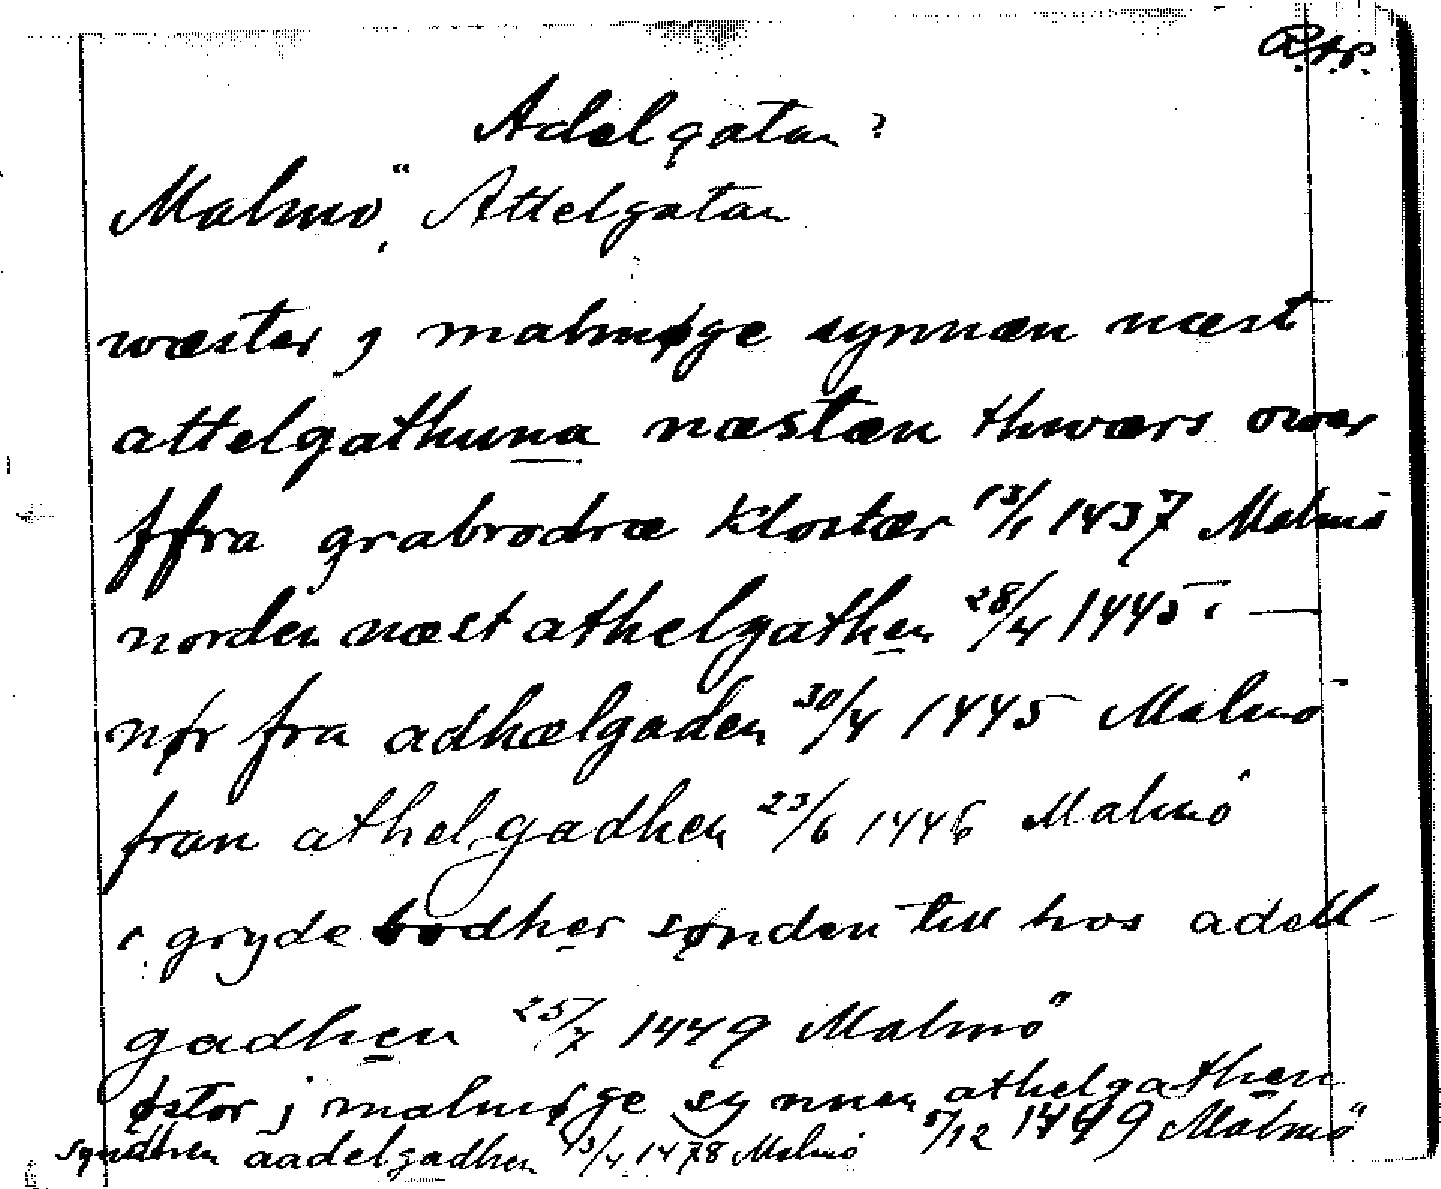 R.A.P.
Adelgatan?
Malmö, Attelgatan
wæster j malmøge synnæn næst
attelgathuna næstæn thwærs ower
ffra grabrodræ klostær 13/1 1437 Malmö
norden næst athelgathen 28/4 1445. —
nør fra adhælgaden 30/4 1445 Malmö
fran athelgadhen 23/6 1446 Malmö
i grydebodher sønden till hos adell-
gadhen 25/7 1449 Malmö
østor j malmøge synnen athelgathen
5/12 1449 Malmö
syndhen aadelgadhen 13/4 1478 Malmö